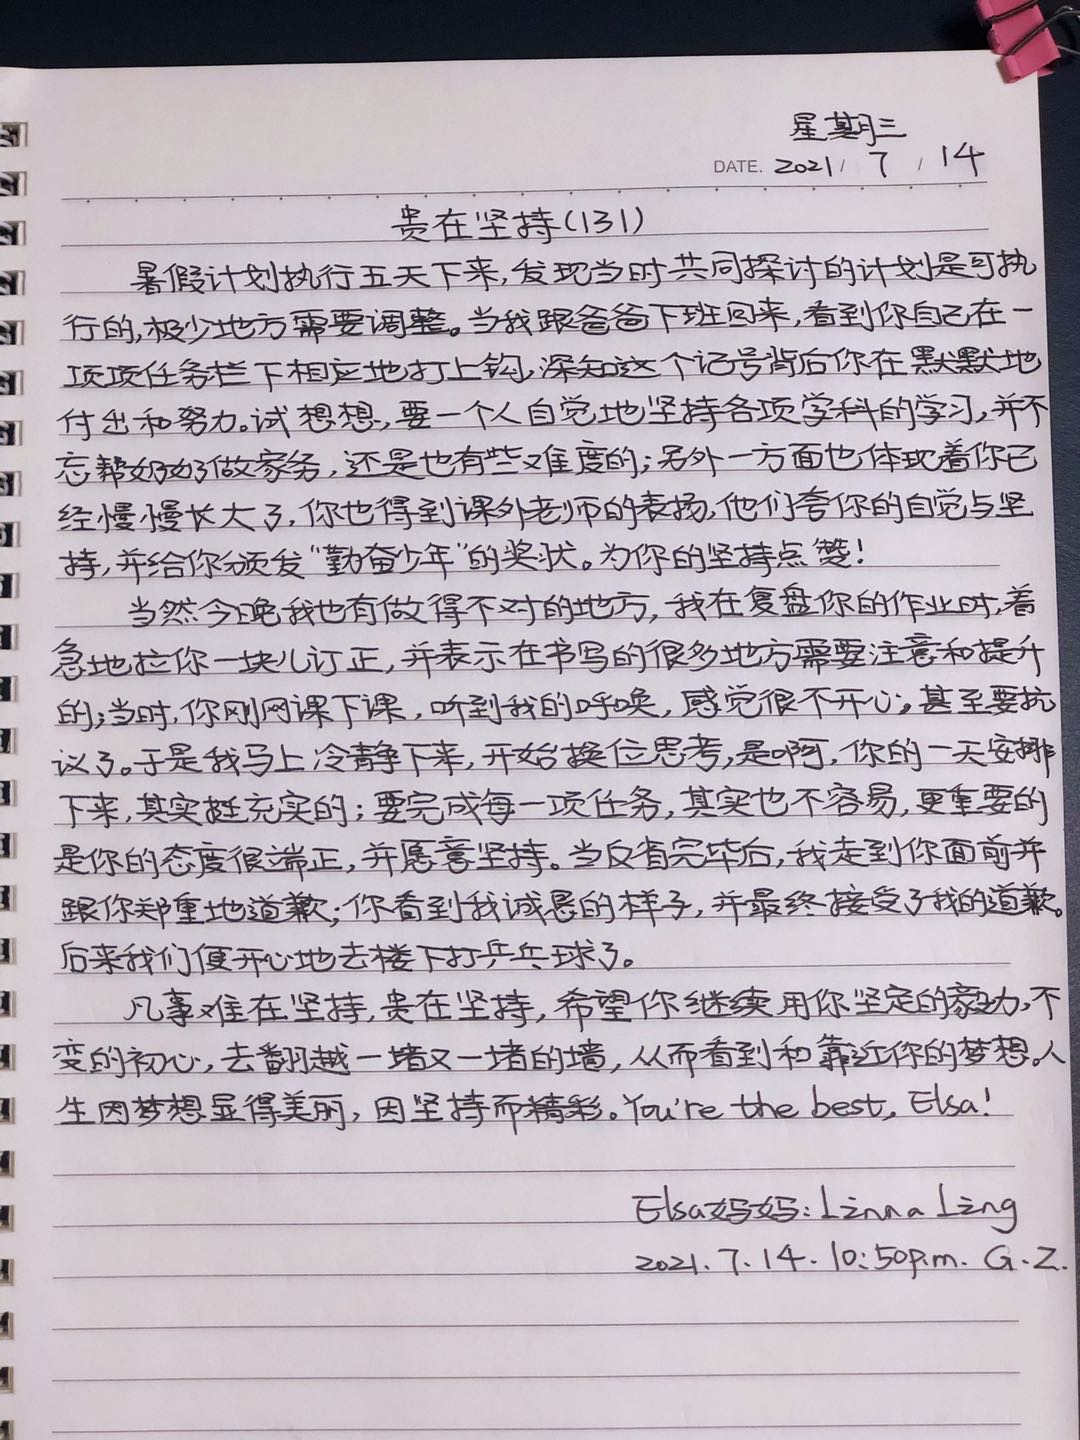 星期三
DATE. 2021 / 7 / 14
贵在坚持(131)
暑假计划执行五天下来,发现当时共同探讨的计划是可执
行的,极少地方需要调整。当我跟爸爸下班回来,看到你自己在一
项项任务栏下相应地打上钩,深知这个记号背后你在默默地
付出和努力。试想想,要一个人自觉地坚持各项学科的学习,并不
忘帮奶奶做家务,还是也有些难度的;另外一方面也体现着你已
经慢慢长大了,你也得到课外老师的表扬,他们夸你的自觉与坚
持,并给你颁发“勤奋少年”的奖状。为你的坚持点赞!
当然今晚我也有做得不对的地方,我在复盘你的作业时,着
急地拉你一块儿订正,并表示在书写的很多地方需要注意和提升
的;当时,你刚网课下课,听到我的呼唤,感觉很不开心;甚至要抗
议了。于是我马上冷静下来,开始换位思考,是啊,你的一天安排
下来,其实挺充实的;要完成每一项任务,其实也不容易,更重要的
是你的态度很端正,并愿意坚持。当反省完毕后,我走到你面前并
跟你郑重地道歉;你看到我诚恳的样子,并最终接受了我的道歉。
后来我们便开心地去楼下打乒乓球了。
凡事难在坚持,贵在坚持,希望你继续用你坚定的毅力,不
变的初心,去翻越一堵又一堵的墙,从而看到和靠近你的梦想。人
生因梦想显得美丽,因坚持而精彩。You're the best, Elsa!
Elsa妈妈: Linna Ling
2021.7.14. 10:50p.m. G.Z.